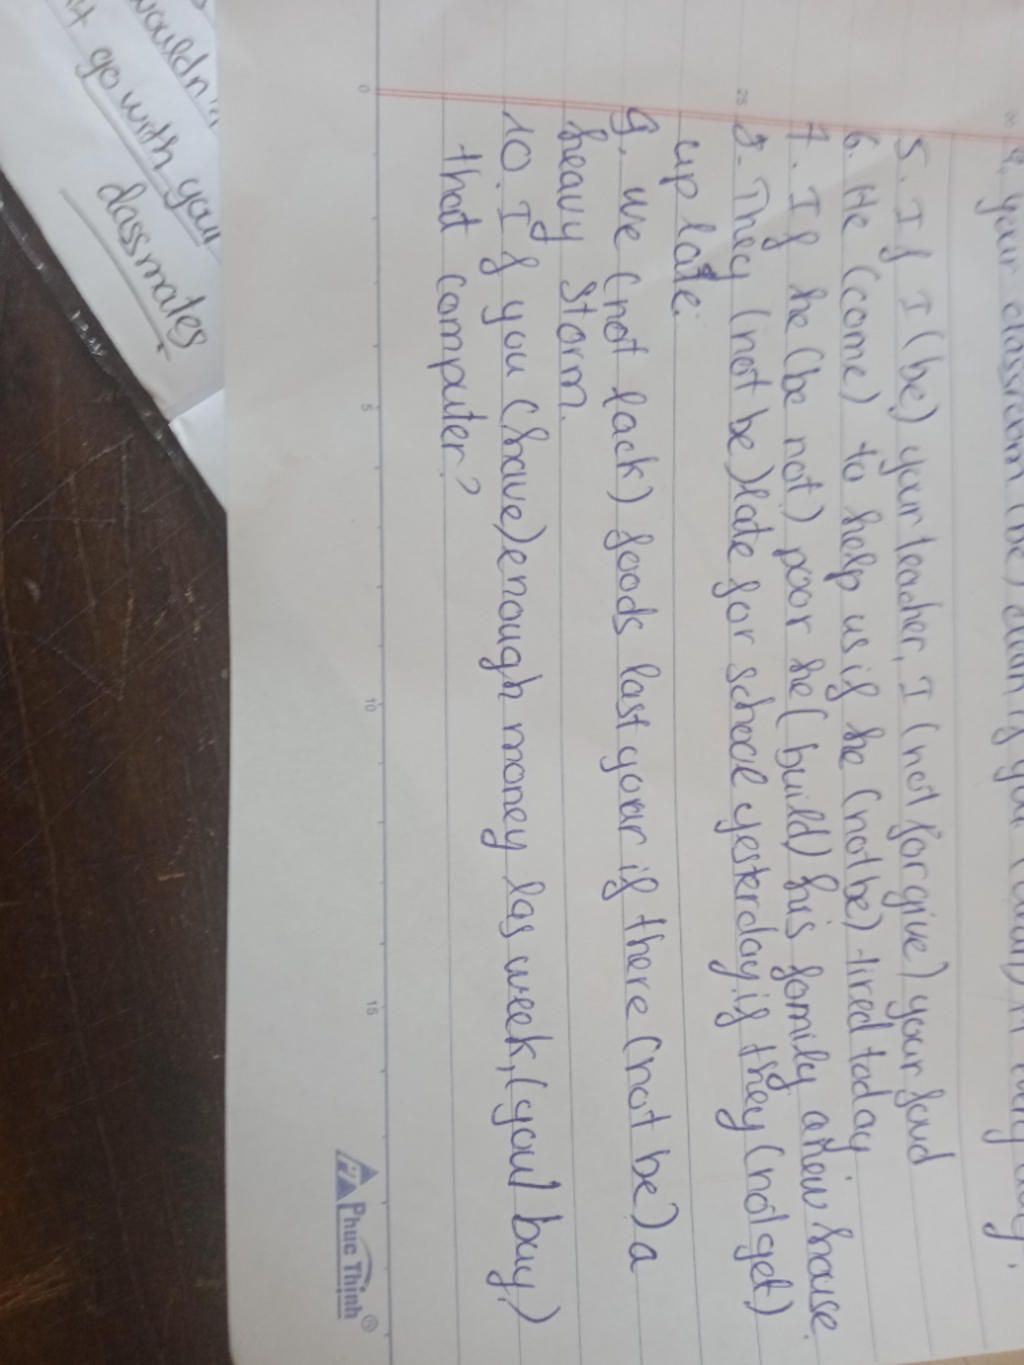 4. your classroom (be) clean if you
5. If I (be) your teacher, I (not forgive) your foud
6. He (come) to help us if he (not be) tired today
7. If he (be not) poor he (build) his fomily a new house.
8. They (not be) late for school yesterday if they (not get)
up late.
9. we (not lack) foods last year if there (not be) a
heavy storm.
10. If you (have) enough money las week, (you buy)
that computer?
0 5 10 15
25
Phuc Thinh®
wouldn't
go with your
classmates